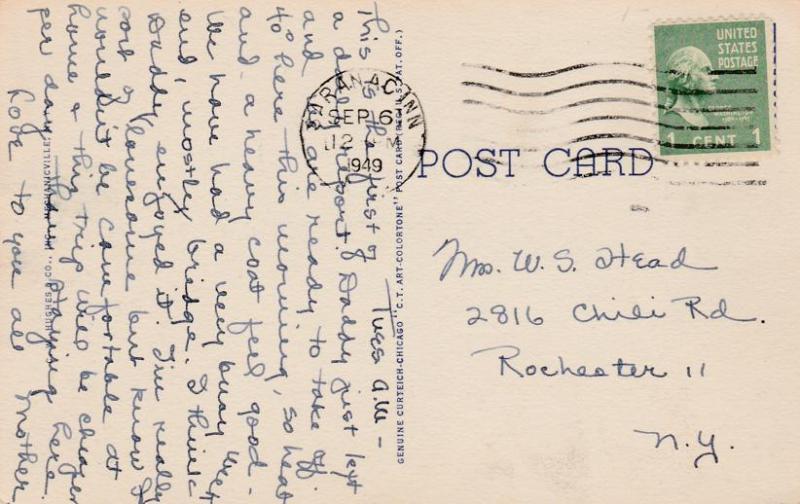 Tues a.m. -
This is the first of
a daily report. Daddy just left
and are ready to take off.
40° here this morning, so heat
and a heavy coat feel good -
We have had a very busy week
end, mostly bridge. I think
Daddy enjoyed it. I'm really
sort of lonesome but know I
wouldn't be comfortable at
home & this trip will be cheaper
per day than staying here.
Love to you all
Mother
HUGHES & CO.
GENUINE CURTEICH-CHICAGO "C.T. ART-COLORTONE" POST CARD (REG. U.S. PAT. OFF.)
SARANAC INN
SEP 6
12 M
1949
UNITED
STATES
POSTAGE
1 CENT 1
POST CARD
Mrs. W. S. Head
2816 Chili Rd.
Rochester 11
N.Y.